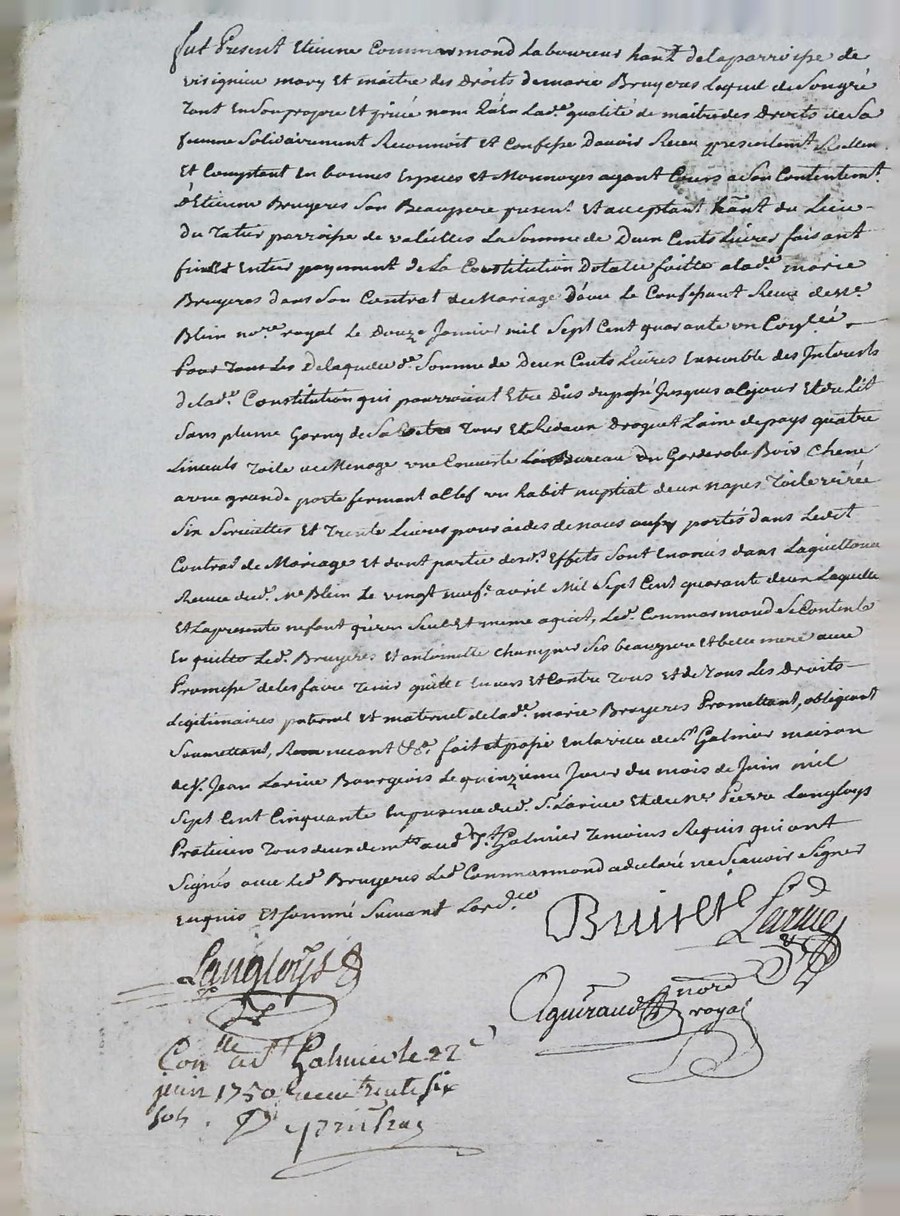 fut Present Etienne Commarmond Laboureur hant. de la parroisse de
visignieu mary Et maitre des Droits de marie Bruyeres Lequel de Son gré
tant En Son propre Et privé nom qu'En lad.e qualité de maitre des Droits de Sa
femme Solidairement Reconnoit Et Confesse D'avoir Receu presentement Reellem.
Et Comptant En bonnes Especes Et Monnoyes ayant Cours a Son Contentemt.
d'Etienne Bruyeres Son Beaupere present Et acceptant hant. du Lieu
du parroisse de valeilles La Somme de Deux Cents Livres faisant
Entier payement de La Constitution Dotale faitte a lad.e marie
Bruyeres dans Son Contrat de Mariage D'avec le Confessant Receu de Me.
Blein nore. royal le Douze Janvier mil Sept Cent quarante un
De laquelle d.e Somme de Deux Cents Livres Ensemble des Interests
de lad.e Constitution qui pourroient Etre Dûs du passé Jusques a Ce jour Et du Lit
Sans plume Garny de Sa tour Et Rideaux Droguet Laine de pays quatre
Linceuls toile de Menage une Couverte Bureau Un Garderobe Bois Chene
a une grande porte fermant a Clef un habit nuptial deux napes toile
Six Serviettes Et trente Livres pour aides de noces aussy portés dans Ledit
Contrat de Mariage Et dont partie desd.s Effets Sont Enoncés dans La quittance
Receue dud. Me Blein Le vingt neuf.e avril Mil Sept Cent quarante deux Laquelle
Et La presente ne font qu'un Seul Et meme aquit, Led. Commarmond Se Contente
En quitte Led. Bruyeres Et antoinette Ses beaupere Et belle mere avec
Promesse de les faire tenir quitte Envers Et Contre tous Et de tous Les Droits
Legitimaires paternel Et maternel de lad.e marie Bruyeres Promettant, obligeant
Soumettant, Renonceant &a. fait Et passé En la ville de St. Galmier maison
de Sr. Jean Larive Bourgeois Le quinzieme Jour du mois de Juin mil
Sept Cent Cinquante En presence dud. Sr. Larive Et de Me Pierre Langloys
Praticien tous deux demts. aud. St. Galmier temoins Requis qui ont
Signés avec Led. Bruyeres Led. Commarmond a declaré ne Scavoir Signer
Enquis Et Sommé Suivant Lord.ce
Bruiere Larive
Langloys
Aguiraud nore royal
Conlle a St Galmier le 22e
juin 1750 Receu trente six
sols.